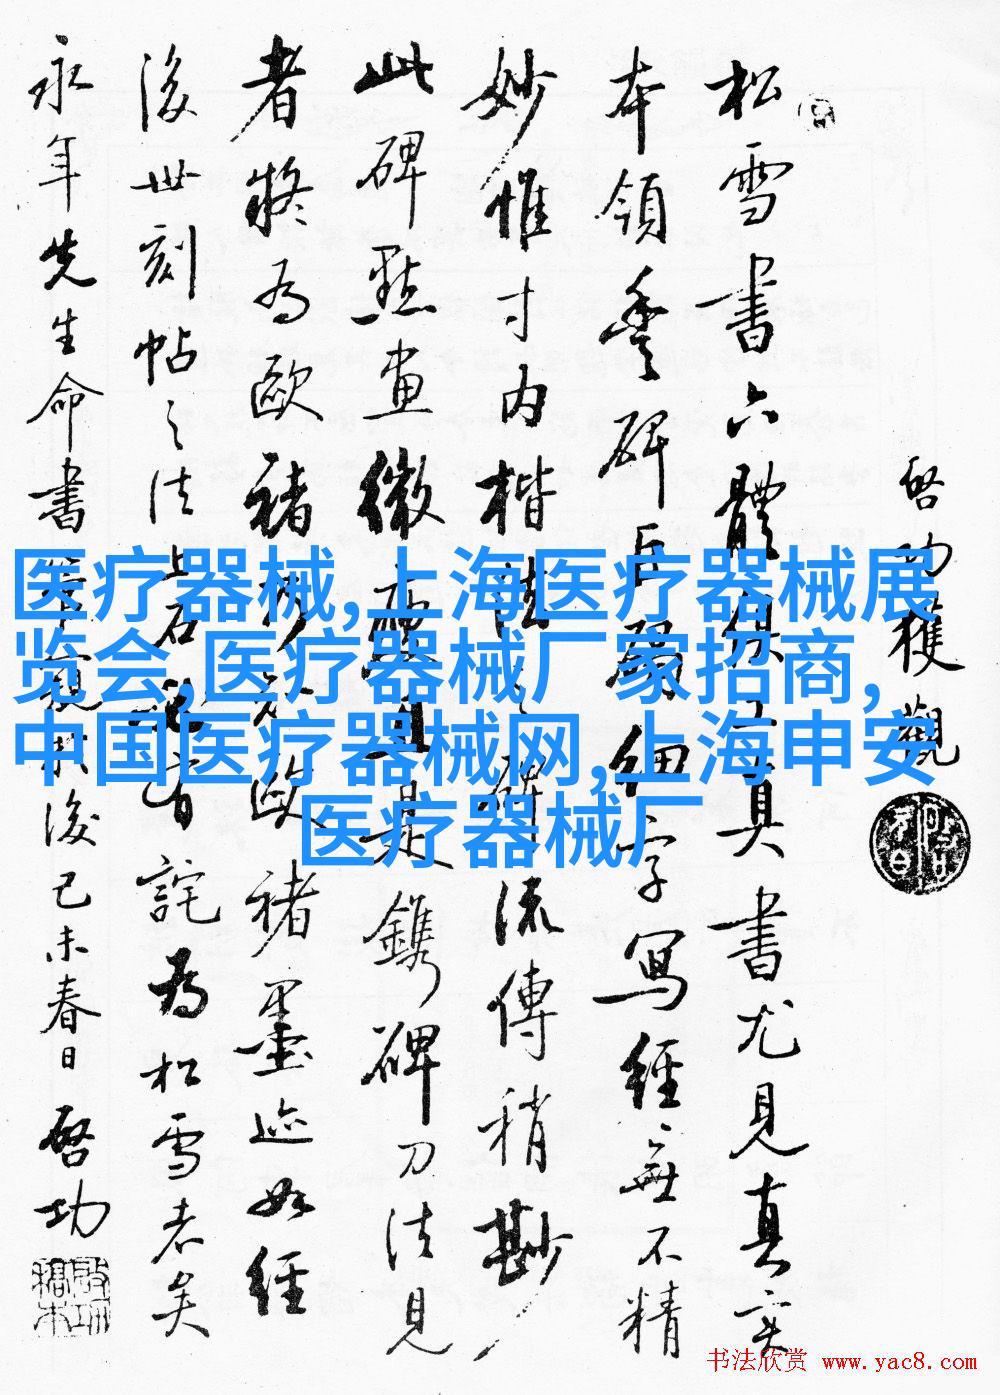 啓功獲觀
松雪書六體俱工真書尤見真實
本領豐碑巨碣細字寫經無不精
妙惟寸內楷法之碑流傳稍尠
此碑點畫微鐫碑刀法見
者將為歐褚歐褚墨迹如經
後世刻帖之法上石有詫為松雪者矣
永年先生命書後己未春日啓功
医疗器械,上海医疗器械展
览会,医疗器械厂家招商,
中国医疗器械网,上海申安
医疗器械厂
书法欣赏 www.yac8.com